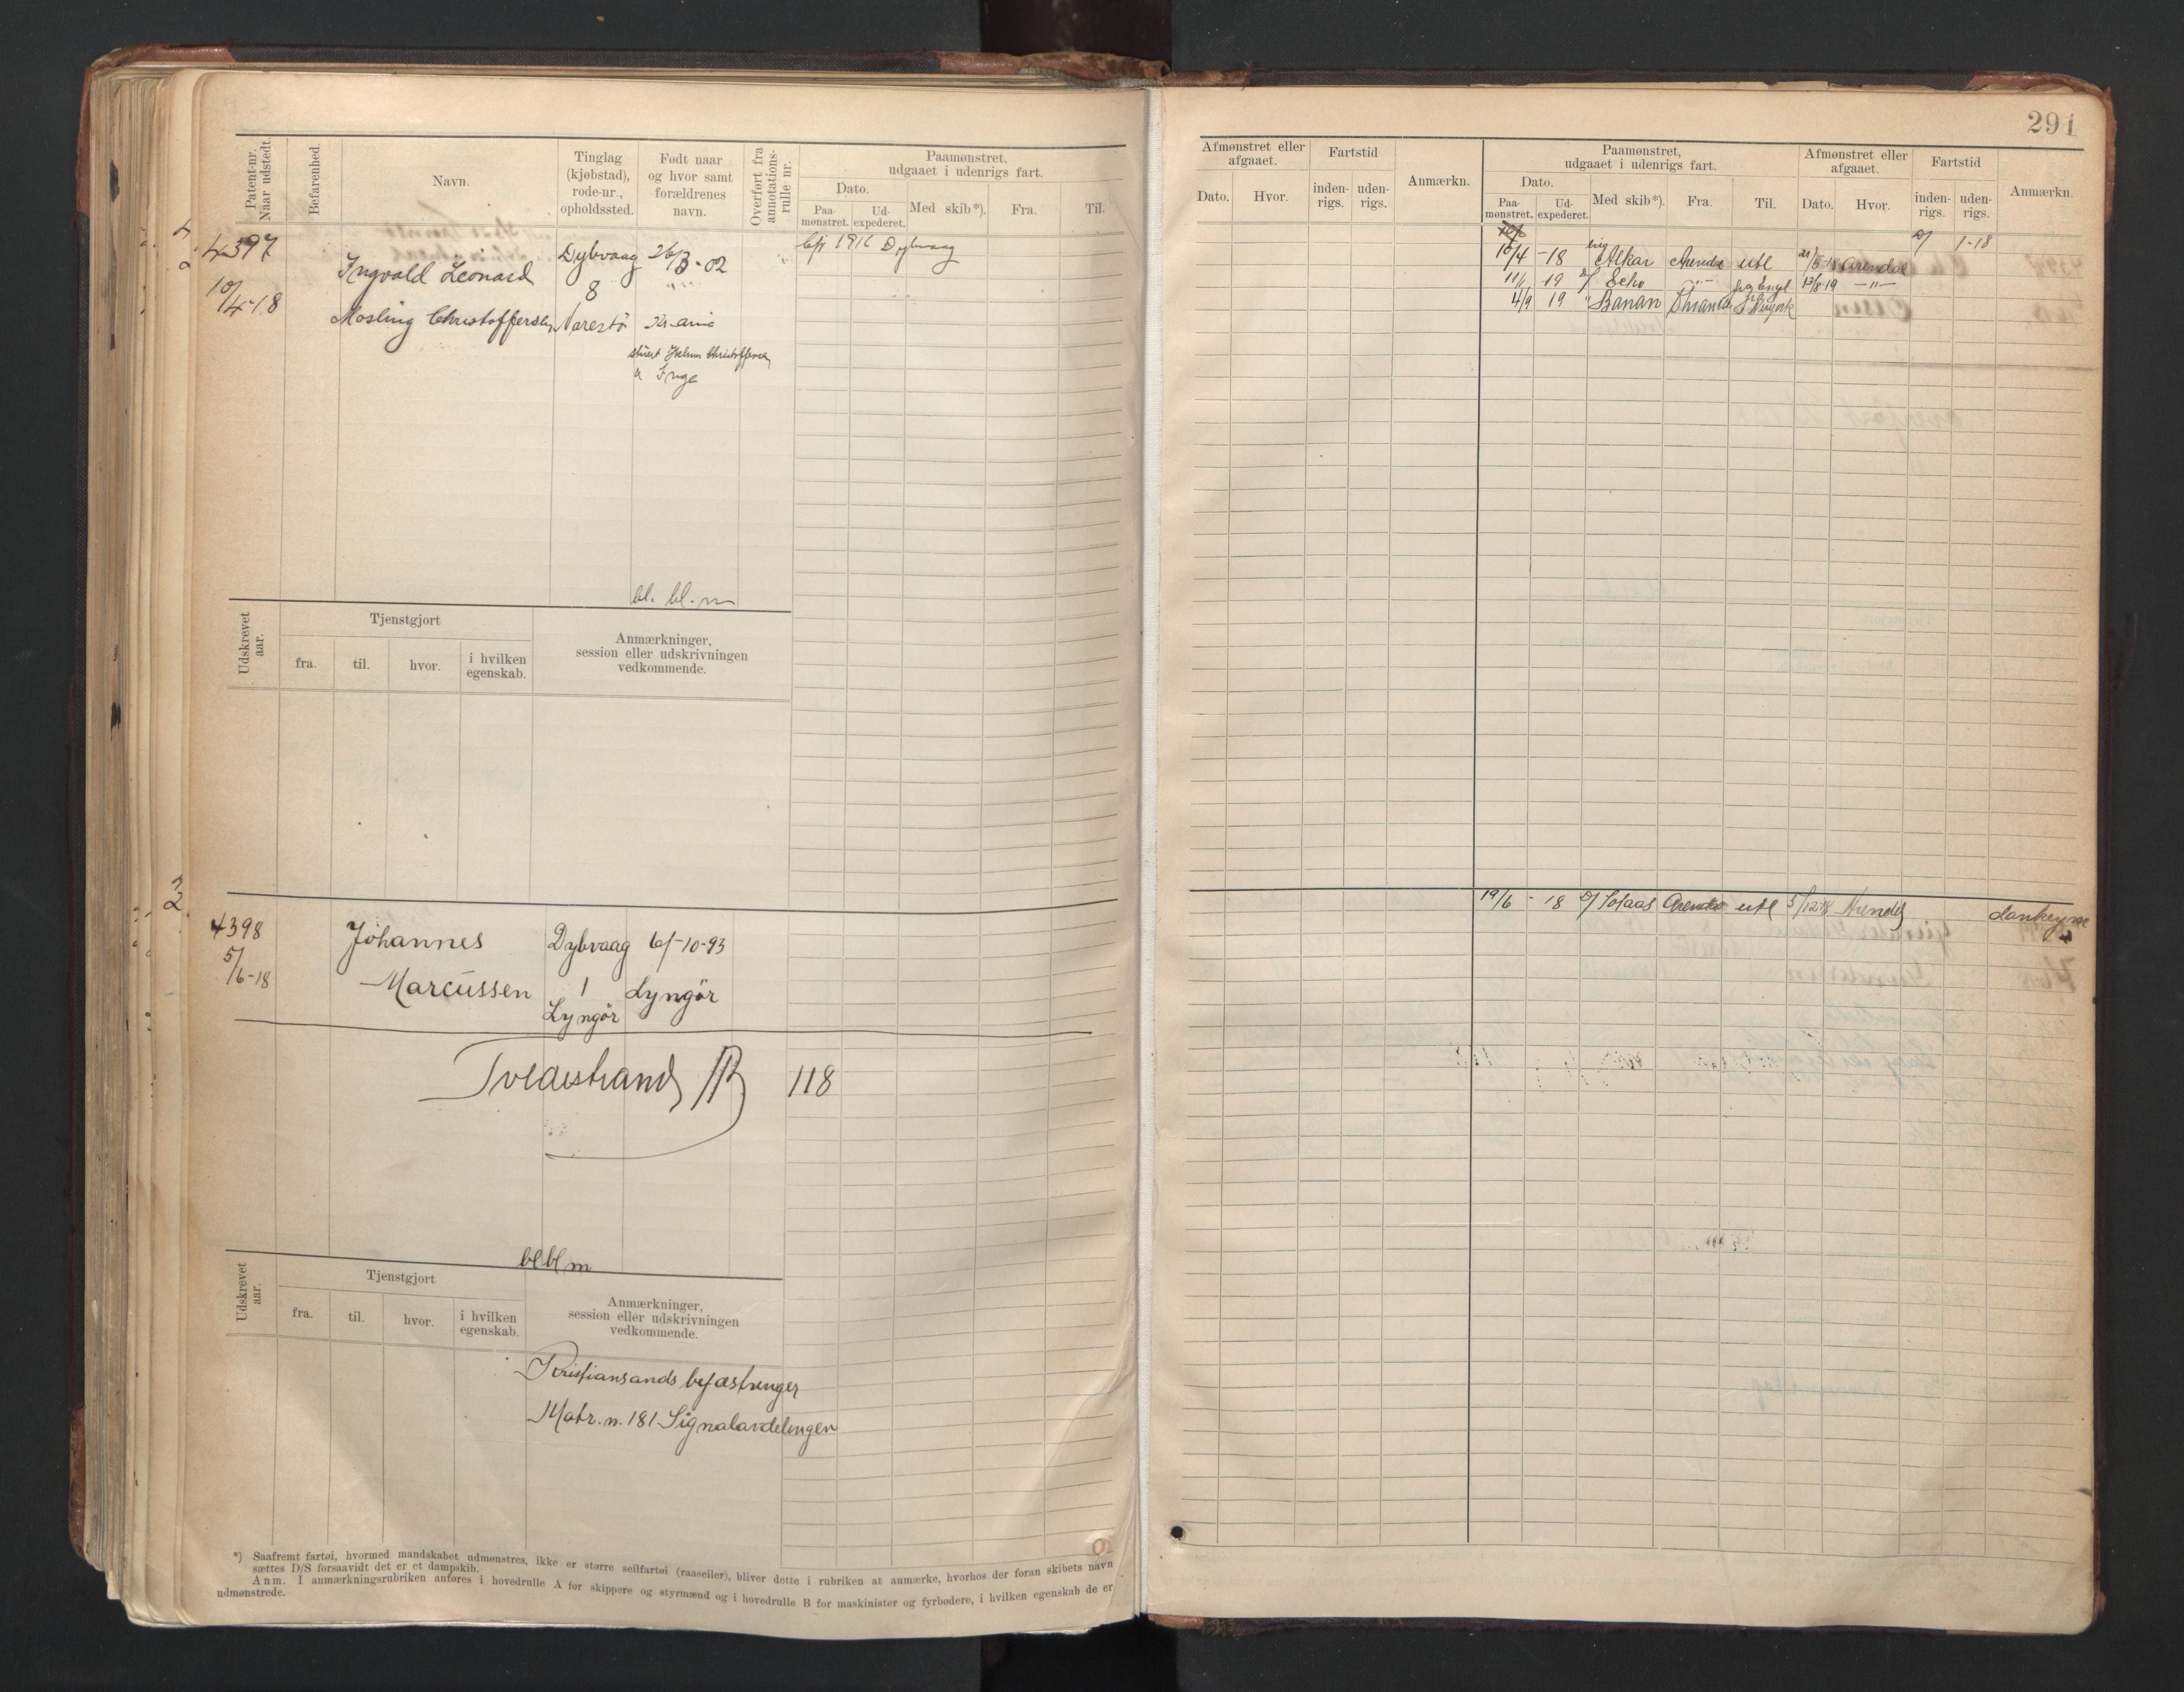 291
Patent-nr. Naar udstedt.
Befarenhed.
Navn.
Tinglag (kjøbstad), rode-nr., opholdssted.
Født naar og hvor samt forældrenes navn.
Overført fra annotations-rulle nr.
Paamønstret, udgaaet i udenrigs fart.
Dato.
Paa-mønstret.
Ud-expederet.
Med skib*).
Fra.
Til.
Afmønstret eller afgaaet.
Dato.
Hvor.
Fartstid
inden-rigs.
uden-rigs.
Anmærkn.
Paamønstret, udgaaet i udenrigs fart.
Dato.
Paa-mønstret.
Ud-expederet.
Med skib*).
Fra.
Til.
Afmønstret eller afgaaet.
Dato.
Hvor.
Fartstid
inden-rigs.
uden-rigs.
Anmærkn.
4397
10/4-18
Ingvald Leonard
Mosling Christoffersen
Dybvaag
8
Narestö
26/3-02
Kr.ania
1916 Dybvaag
1-18
10/4 -18 Alkar Arendal utl 18 Arendal
19 Echo 13/8 19 —"—
4/9 19 " Banan
bl. bl. m
Udskrevet aar.
Tjenstgjort
fra.
til.
hvor.
i hvilken egenskab.
Anmærkninger, session eller udskrivningen vedkommende.
4398
5/6-18
Johannes
Marcussen
Dybvaag
1
Lyngör
6/-10-93
Lyngör
19/6 - 18 Arendal utl 5/12 18 Arendal
Tvedestrand B 118
bl bl m
Udskrevet aar.
Tjenstgjort
fra.
til.
hvor.
i hvilken egenskab.
Anmærkninger, session eller udskrivningen vedkommende.
Kristiansands befæstninger
Matr. n. 181 Signalavdelingen
*) Saafremt fartøi, hvormed mandskabet udmønstres, ikke er større seilfartøi (raaseiler), bliver dette i rubriken at anmærke, hvorhos der foran skibets navn
sættes D/S forsaavidt det er et dampskib.
Anm. I anmærkningsrubriken anføres i hovedrulle A for skippere og styrmænd og i hovedrulle B for maskinister og fyrbødere, i hvilken egenskab de er
udmønstrede.